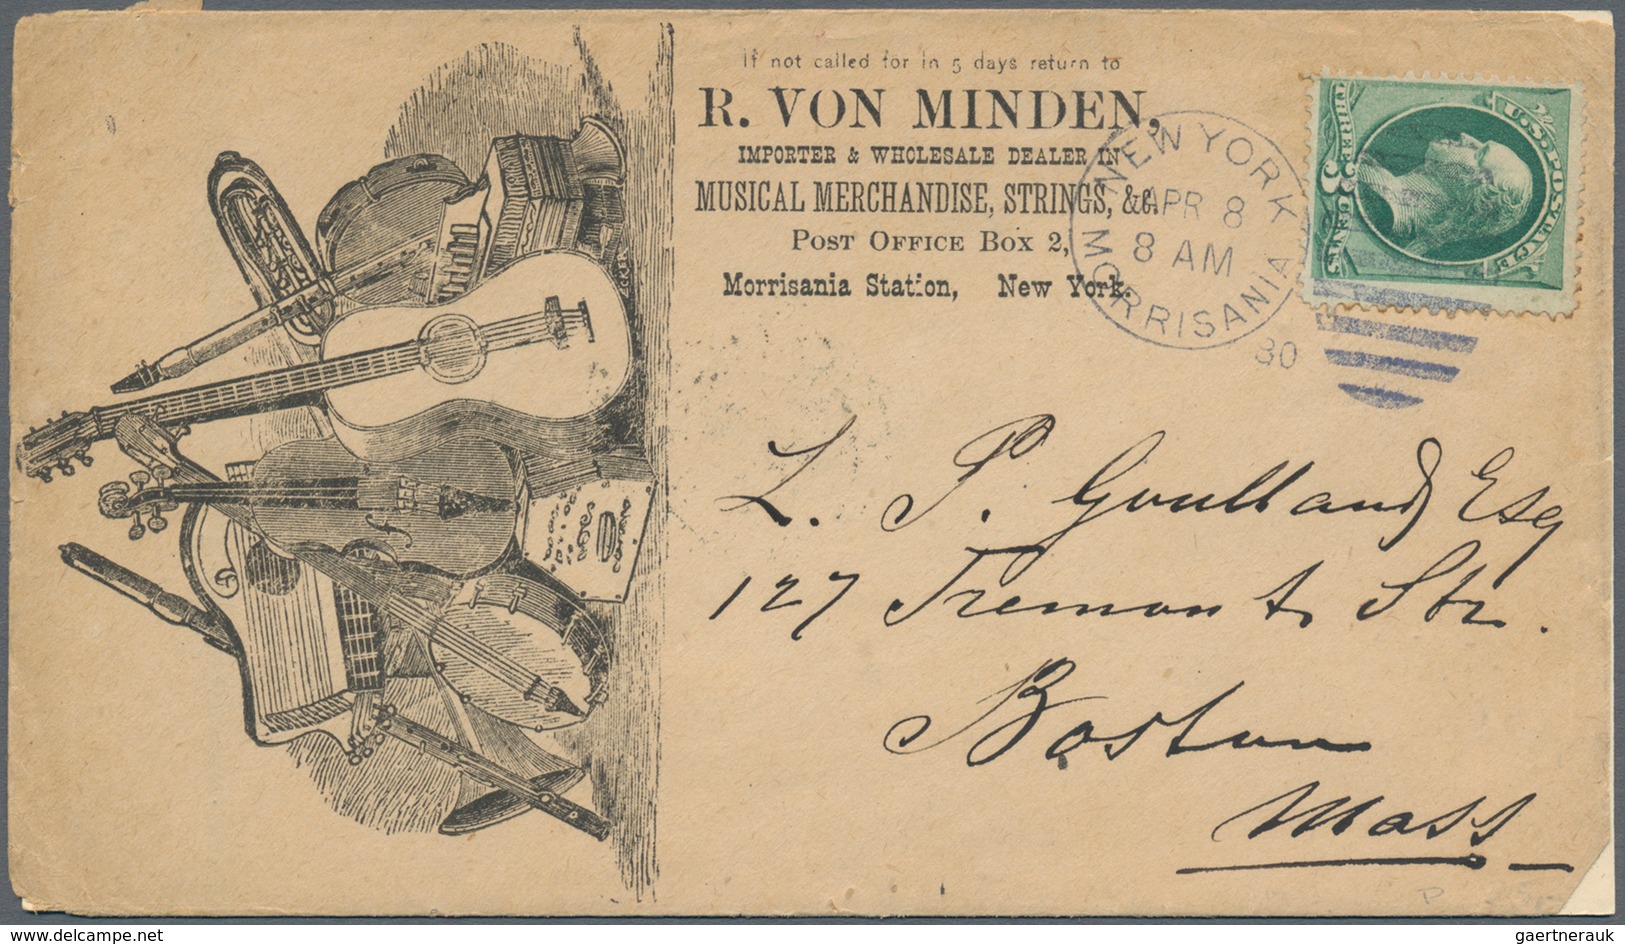 If not called for in 5 days return to
R. VON MINDEN,
IMPORTER & WHOLESALE DEALER IN
MUSICAL MERCHANDISE, STRINGS, &c.
POST OFFICE BOX 2,
Morrisania Station, New York.
NEW YORK
APR 8
8 AM
MORRISANIA
80
U.S. POSTAGE
3
THREE
CENTS
L. P. Goulland Esq
127 Tremont Str.
Boston
Mass
delcampe.net
gaertnerauk